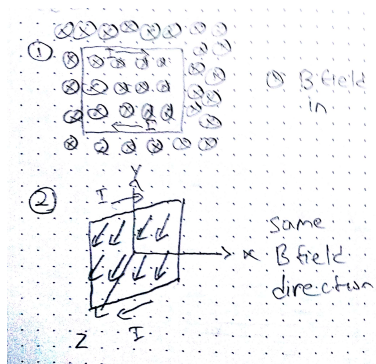 ①
I
I
⊗ B field
in
②
Y
I
x
Same
B field
direction
Z
I